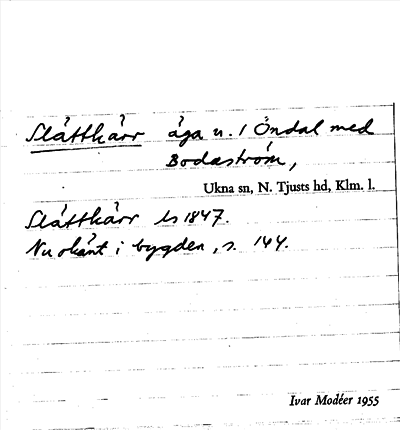 Slåttkärr äga u. 1 Öndal med
Bodaström,
Ukna sn, N. Tjusts hd, Klm. l.
Slåttkärr ls 1847.
Nu okänt i bygden, s. 144.
Ivar Modéer 1955